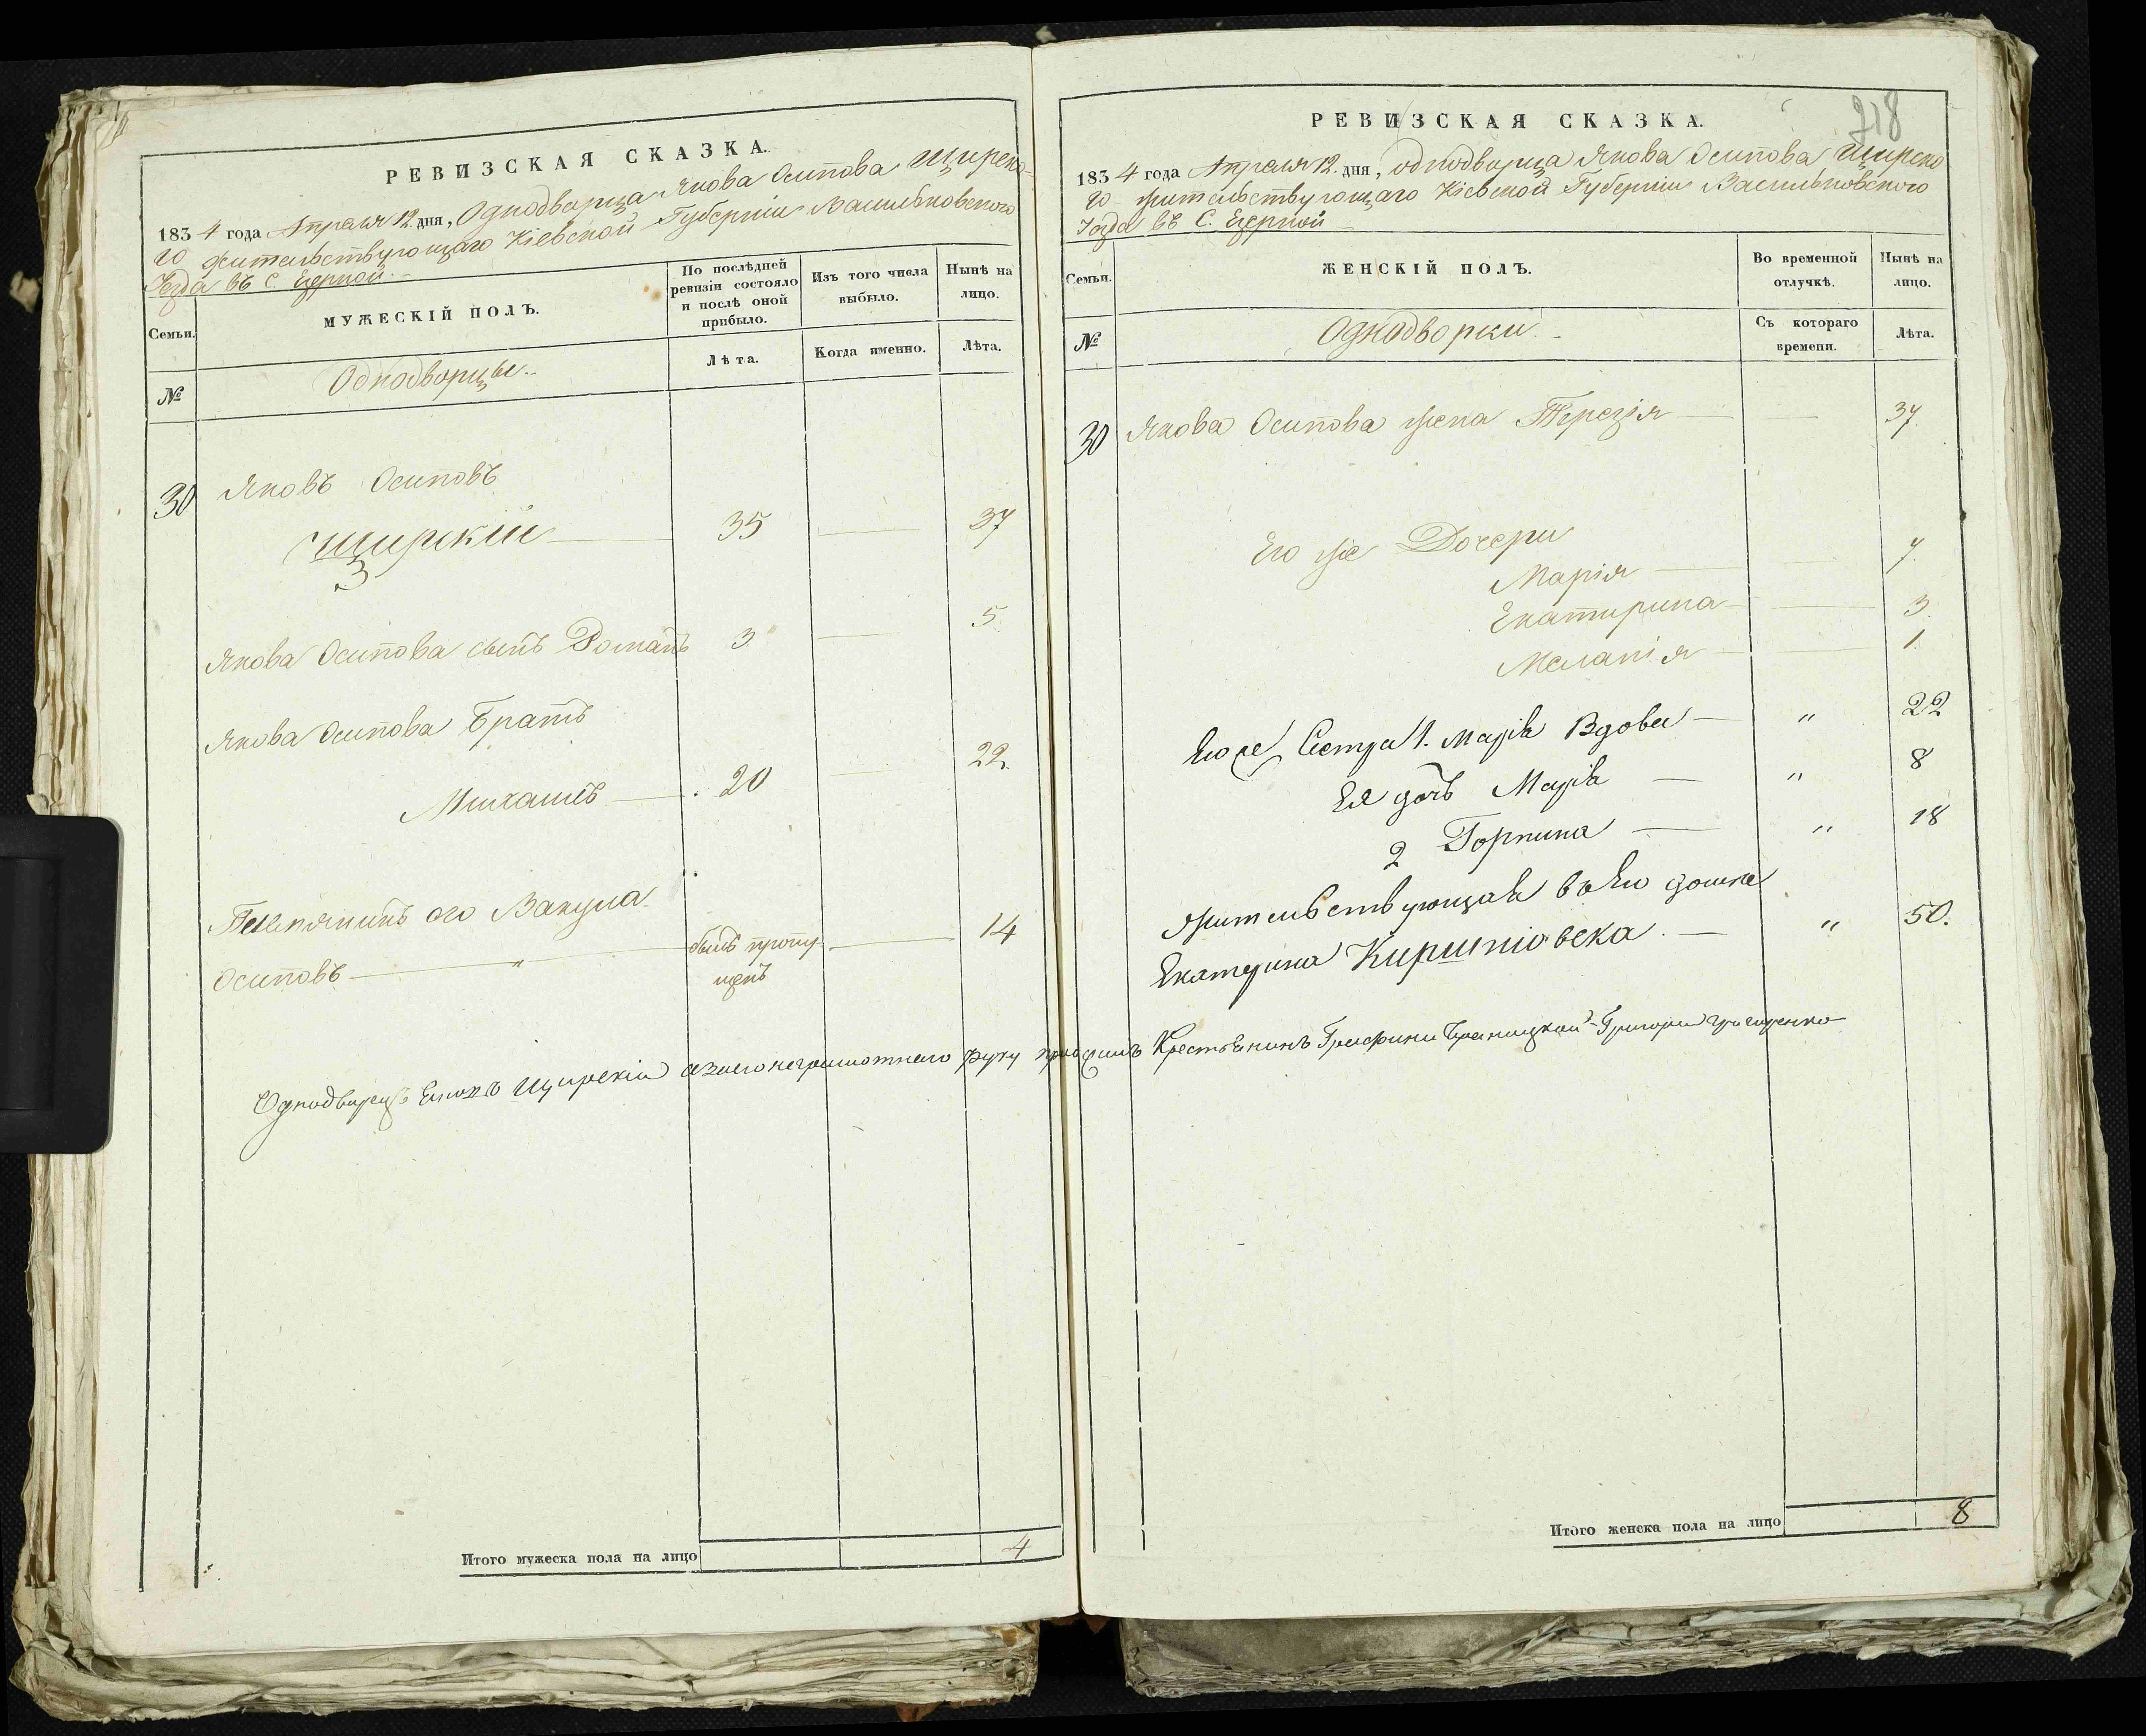 РЕВИЗСКАЯ СКАЗКА.
1834 года Апреля 12. дня, Однодворца Якова Осипова Щирска-
го жительствующаго Кіевской Губерніи Васильковскаго
Уезда въ С. Езерной.
Семьи.
МУЖЕСКІЙ ПОЛЪ.
По послѣдней ревизіи состояло и послѣ оной прибыло.
Изъ того числа выбыло.
Нынѣ на лицо.
№
Однодворцы.
Лѣта.
Когда именно.
Лѣта.
30 Яковъ Осиповъ
Щирскій 35 — 37
3
Якова Осипова сынъ Романъ 3 — 5
Якова Осипова Братъ
Михаилъ — 20 — 22.
Племянникъ его Вакула
Осиповъ — " — былъ пропу- — 14
щенъ
Однодворецъ Яковъ Щирскій а за его неграмотнаго руку приложилъ Крестьянинъ Графини Браницкой Григорій
Итого мужеска пола на лицо 4
218
РЕВИЗСКАЯ СКАЗКА.
1834 года Апреля 12. дня, однодворца Якова Осипова Щирска
го жительствующаго Кіевской Губерніи Васильковского
Уезда въ С. Езерной
Семьи.
ЖЕНСКІЙ ПОЛЪ.
Во временной отлучкѣ.
Нынѣ на лицо.
№
Однодворки.
Съ котораго времени.
Лѣта.
30 Якова Осипова жена Терезія — — 37
Его же Дочери
Марія — — 7.
Екатирина — — 3.
Меланія — — 1.
Его же Сестра 1. Марія Вдова — " 22
Ея дочь Марія — " 8
2 Горпина — " 18
Жительствующая въ Его домѣ
Екатерина — " 50.
Итого женска пола на лицо 8